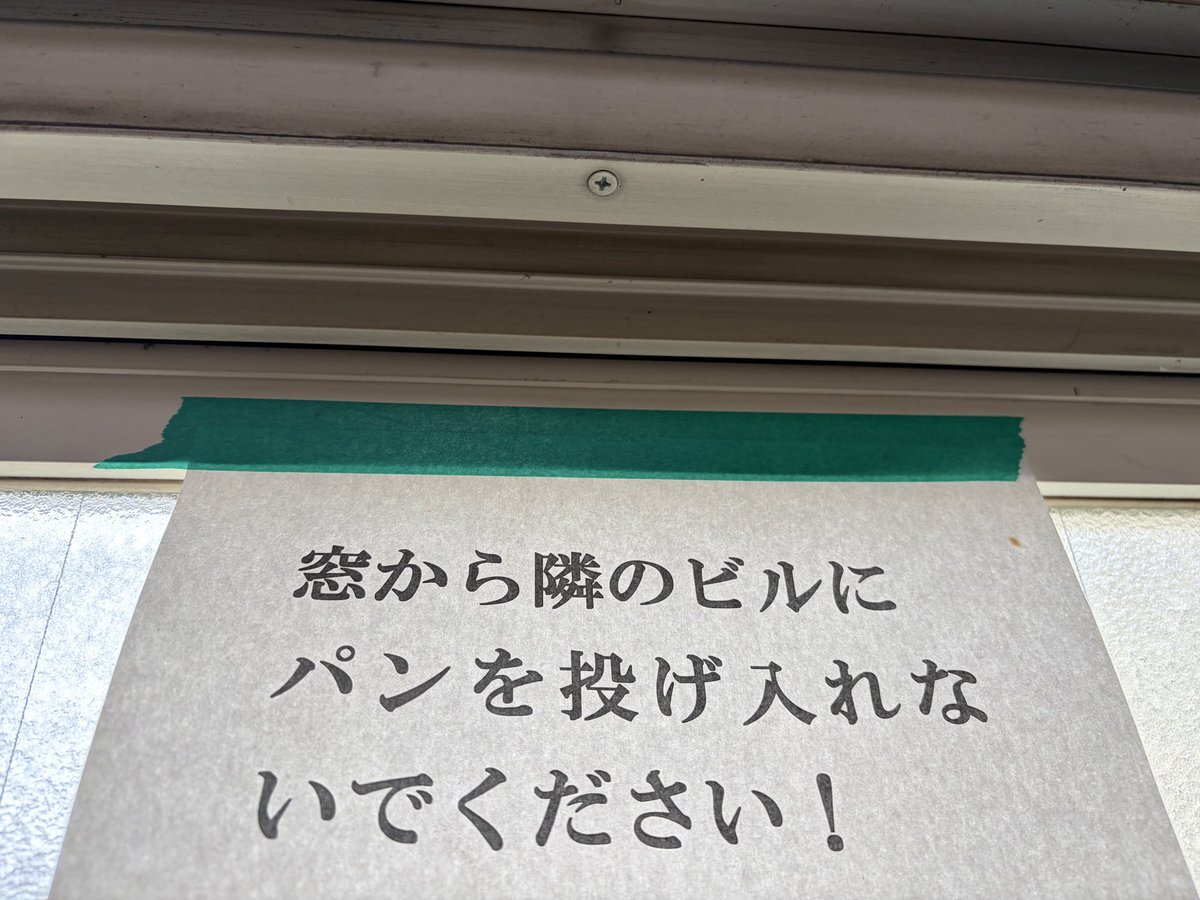 窓から隣のビルに
パンを投げ入れな
いでください！